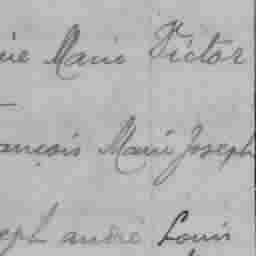 Marie Victor
ançois Marie Joseph
eph andré Louis